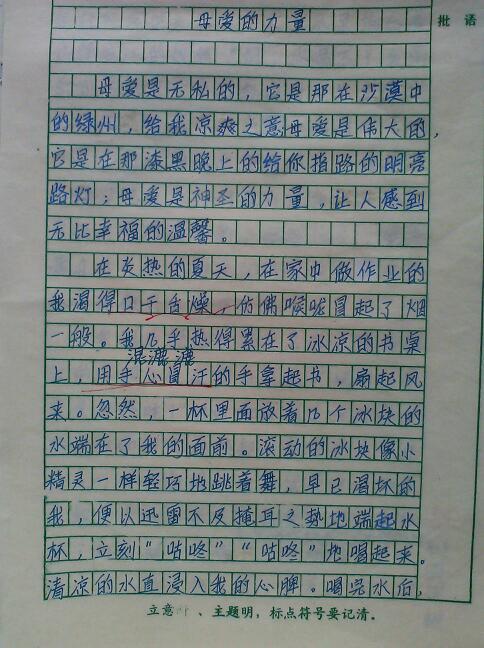 母爱的力量
批 语
母爱是无私的，它是那在沙漠中
的绿州，给我凉爽之意母爱是伟大的，
它是在那漆黑晚上的给你指路的明亮
路灯；母爱是神圣的力量，让人感到
无比幸福的温馨。
在炎热的夏天，在家中做作业的
我渴得口干舌燥，仿佛喉咙冒起了烟
一般。我几乎热得累在了冰凉的书桌
上，用手心冒汗的手拿起书，扇起风
来。忽然，一杯里面放着几个冰块的
水端在了我的面前。滚动的冰块像小
精灵一样轻巧地跳着舞，早已渴坏的
我，便以迅雷不及掩耳之势地端起水
杯，立刻“咕咚”“咕咚”地喝起来。
清凉的水直浸入我的心脾。喝完水后，
立意 、主题明，标点符号要记清。